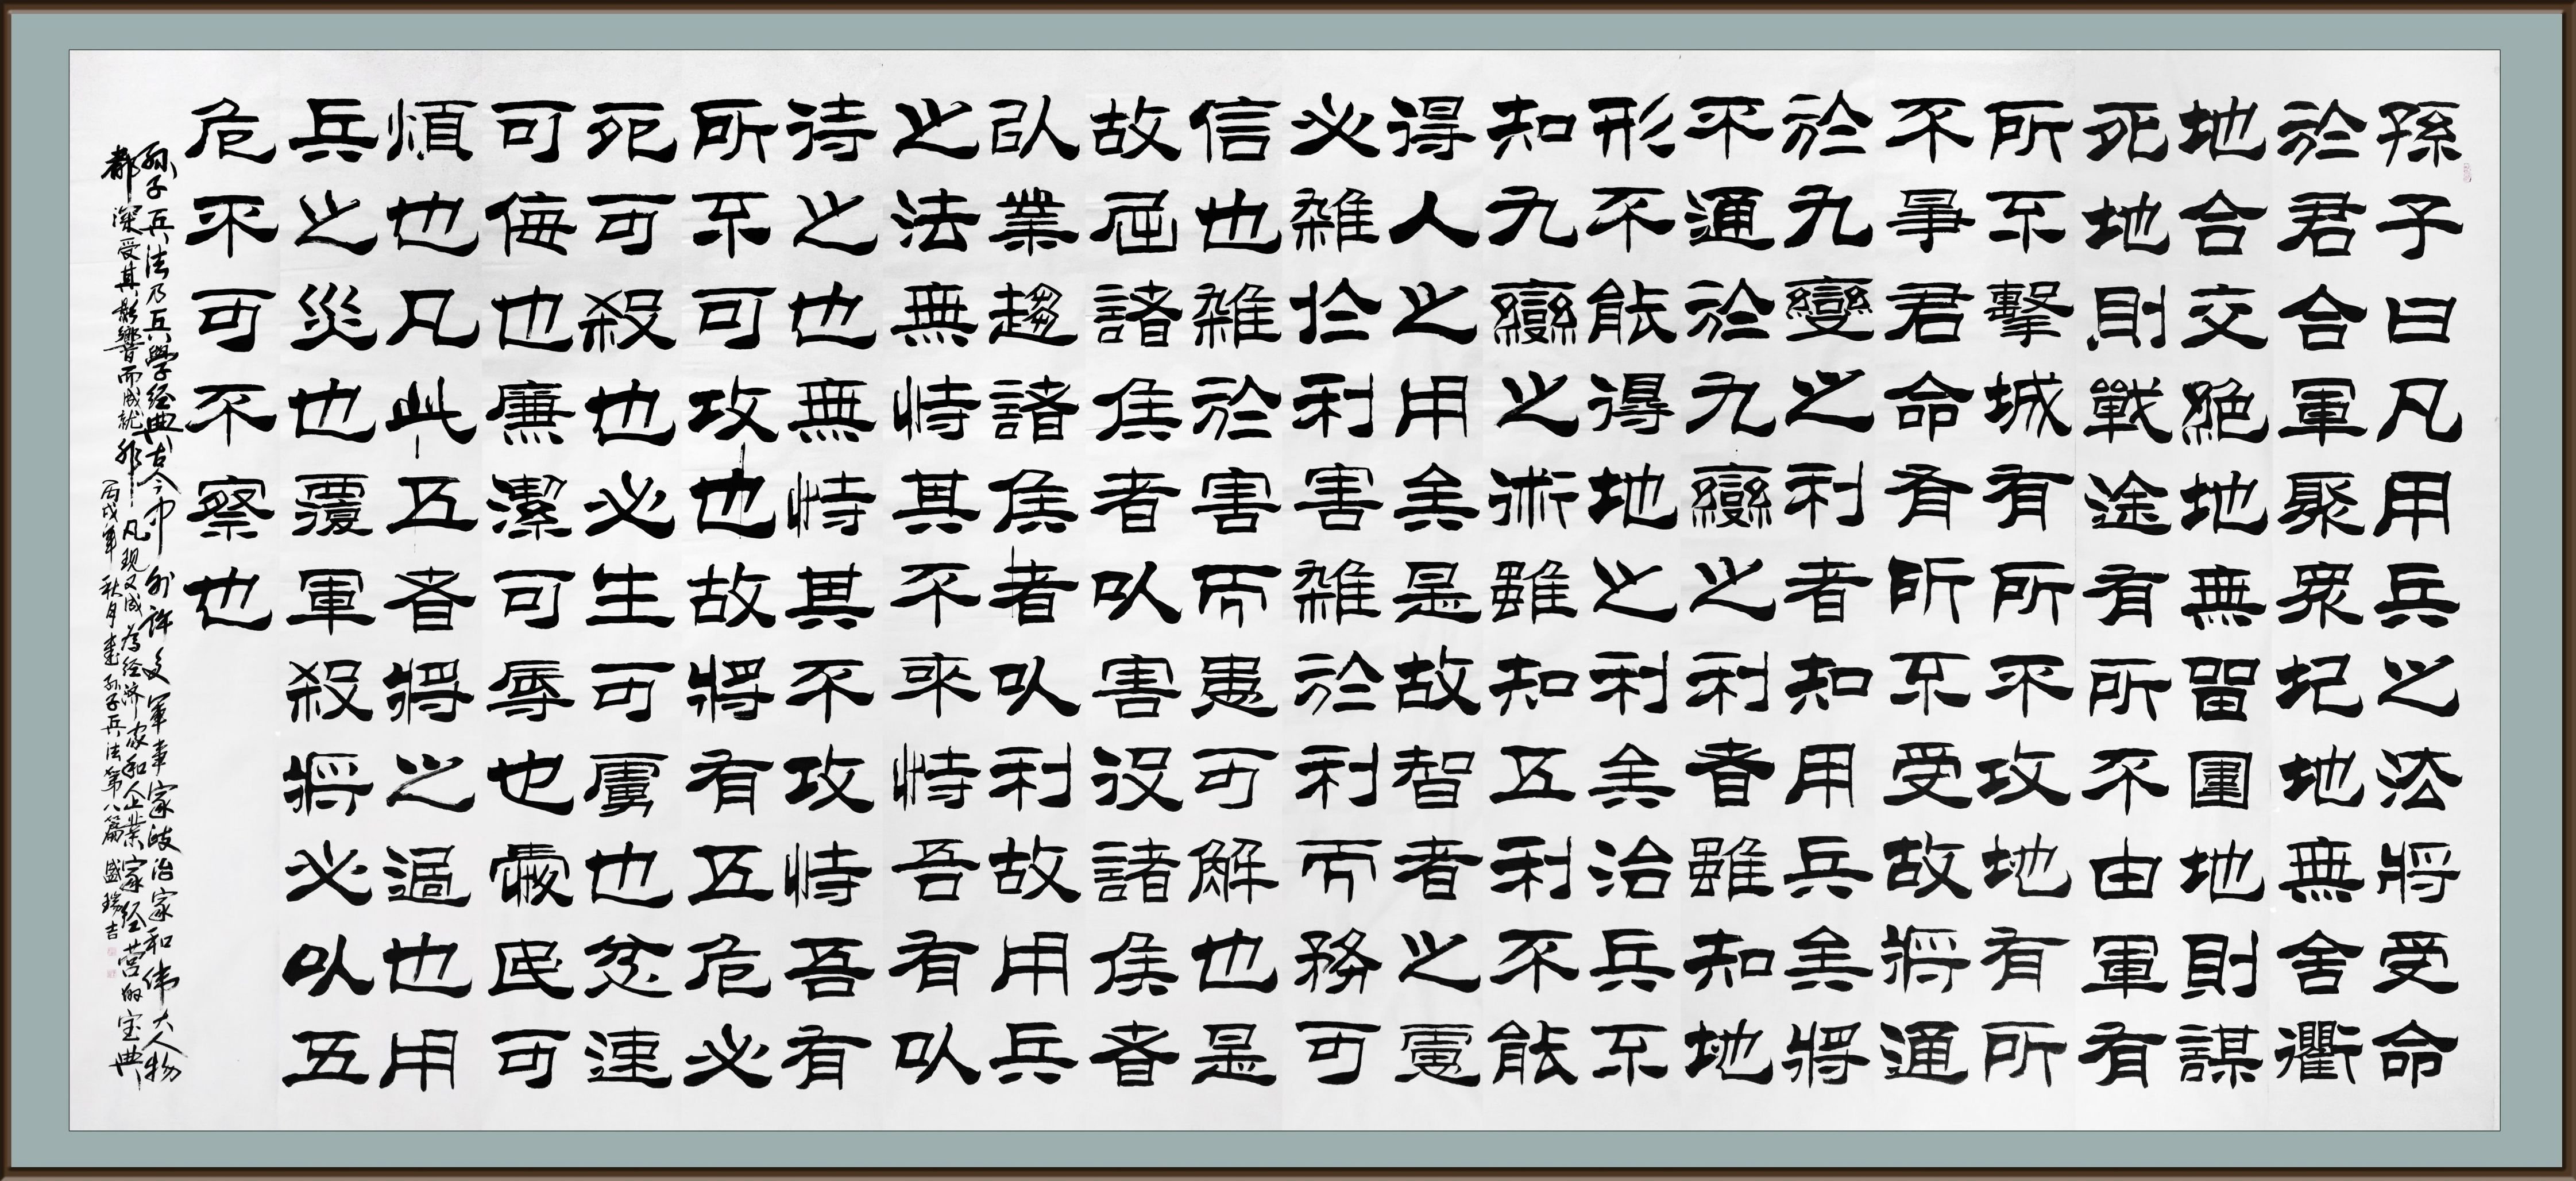 孫子曰凡用兵之法將受命
於君合軍聚衆圮地無舍衢
地合交絶地無留圍地則謀
死地則戰途有所不由軍有
所不擊城有所不攻地有所
不爭君命有所不受故將通
於九變之利者知用兵矣將
不通於九變之利者雖知地
形不能得地之利矣治兵不
知九變之術雖知五利不能
得人之用矣是故智者之慮
必雜於利害雜於利而務可
信也雜於害而患可解也是
故屈諸侯者以害役諸侯者
以業趨諸侯者以利故用兵
之法無恃其不來恃吾有以
待之也無恃其不攻恃吾有
所不可攻也故將有五危必
死可殺也必生可虜也忿速
可侮也廉潔可辱也愛民可
煩也凡此五者將之過也用
兵之災也覆軍殺將必以五
危不可不察也
孙子兵法乃兵學经典古今中外许多軍事家政治家和伟大人物
都深受其影響而成就非凡现又成為经济家和企業家经营的宝典
丙戌年秋月書孙子兵法第八篇盛瑞吉